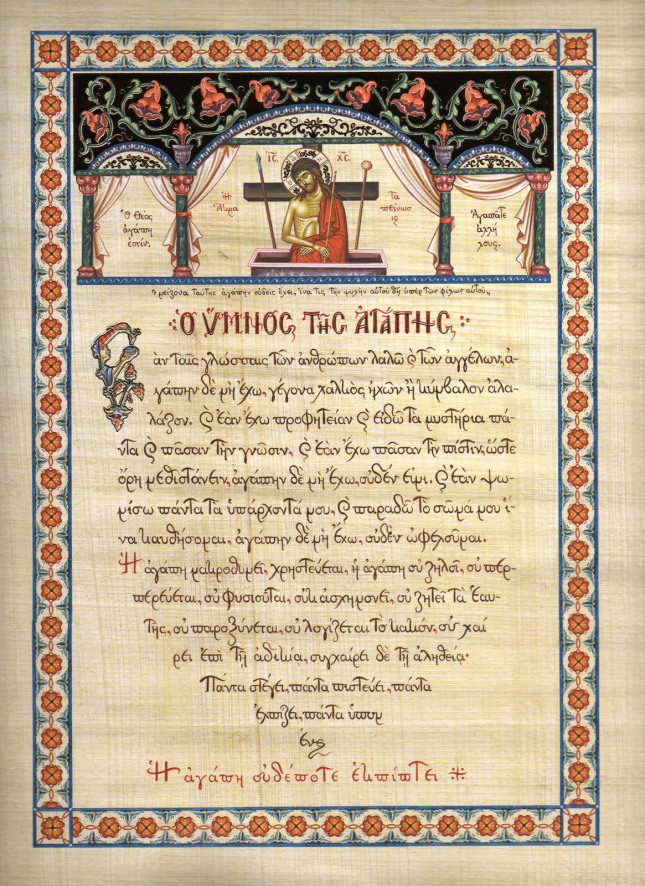 ΙϹ ΧϹ
Ὁ Θεὸς
ἀγάπη
ἐστίν.
Ἡ
Ἄκρα
Τα
πείνωσ
ις
Ἀγαπᾶτε
ἀλλή
λους.
μείζονα ταύτης ἀγάπην οὐδεὶς ἔχει, ἵνα τις τὴν ψυχὴν αὐτοῦ θῇ ὑπὲρ τῶν φίλων αὐτοῦ
Ὁ ὝΜΝΟΣ ΤΗΣ ἈΓΆΠΗΣ
Ἐὰν ταῖς γλώσσαις τῶν ἀνθρώπων λαλῶ ϗ τῶν ἀγγέλων, ἀ-
γάπην δὲ μὴ ἔχω, γέγονα χαλκὸς ἠχῶν ἢ κύμβαλον ἀλα-
λάζον. ϗ ἐὰν ἔχω προφητείαν ϗ εἰδῶ τὰ μυστήρια πά-
ντα ϗ πᾶσαν τὴν γνῶσιν, ϗ ἐὰν ἔχω πᾶσαν τὴν πίστιν, ὥστε
ὄρη μεθιστάνειν, ἀγάπην δὲ μὴ ἔχω, οὐδέν εἰμι. ϗ ἐὰν ψω-
μίσω πάντα τὰ ὑπάρχοντά μου, ϗ παραδῶ τὸ σῶμά μου ἵ-
να καυθήσομαι, ἀγάπην δὲ μὴ ἔχω, οὐδὲν ὠφελοῦμαι.
Ἡ ἀγάπη μακροθυμεῖ, χρηστεύεται, ἡ ἀγάπη οὐ ζηλοῖ, οὐ περ-
περεύεται, οὐ φυσιοῦται, οὐκ ἀσχημονεῖ, οὐ ζητεῖ τὰ ἑαυ-
τῆς, οὐ παροξύνεται, οὐ λογίζεται τὸ κακόν, οὐ χαί
ρει ἐπὶ τῇ ἀδικίᾳ, συγχαίρει δὲ τῇ ἀληθείᾳ·
Πάντα στέγει, πάντα πιστεύει, πάντα
ἐλπίζει, πάντα ὑπομ
ένει
Ἡ ἀγάπη οὐδέποτε ἐκπίπτει